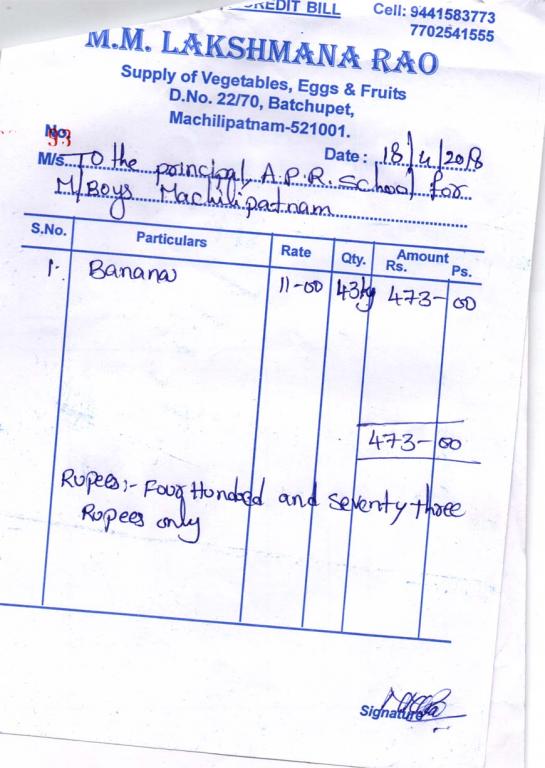 CREDIT BILL
Cell: 9441583773
7702541555
M.M. LAKSHMANA RAO
Supply of Vegetables, Eggs & Fruits
D.No. 22/70, Batchupet,
Machilipatnam-521001.
No. 93
Date: 18/4/2018
M/s. TO the principal, A.P.R. School for
M/Boys Machilipatnam
S.No. Particulars Rate Qty. Amount Rs. Ps.
1. Banana 11-00 43kg 473-00
473-00
Rupees:- Four Hundred and seventy three
Rupees only
Signature